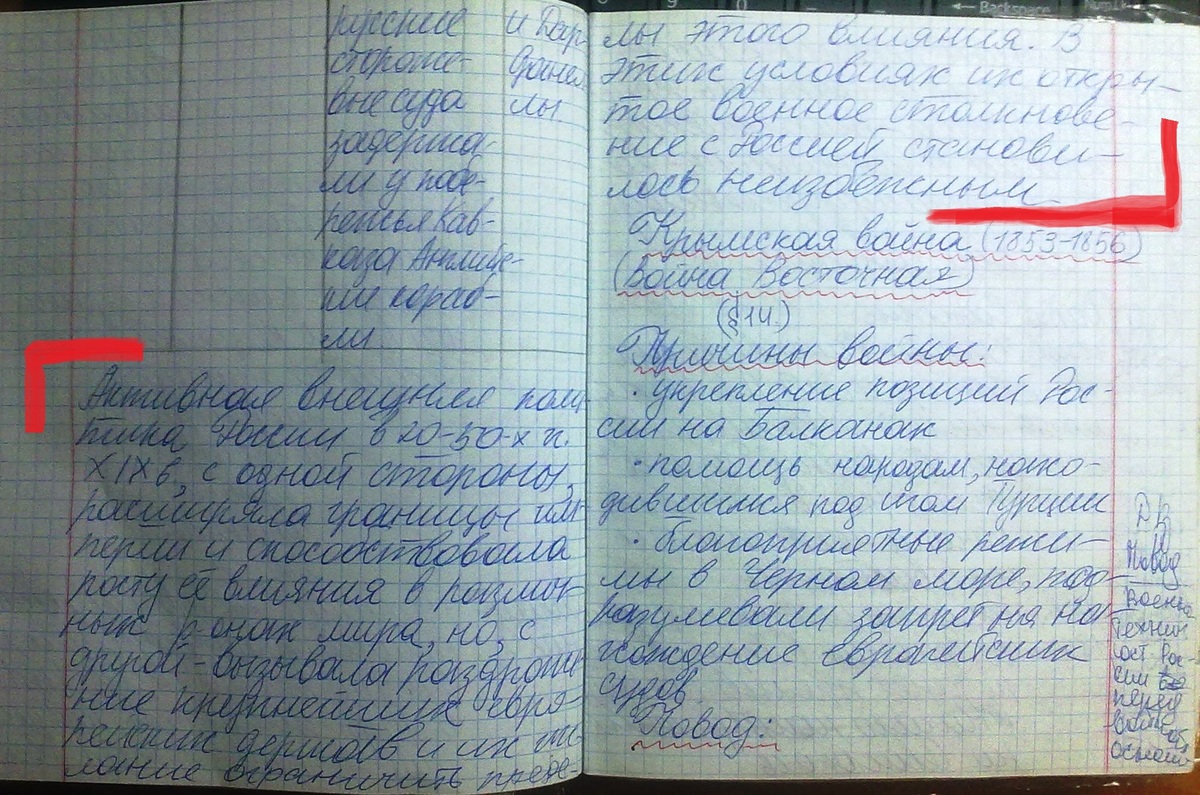 русские
стороже-
вне суда
задержа-
ли у побе-
режья Кав-
каза Английс-
кие кораб-
ли
и Дар
данел
лы
Активная внешняя поли
тика России в 20-50-х г.
XIX в, с одной стороны,
расширяла границы им
перии и способствовала
росту её влияния в различ-
ных р-онах мира, но, с
другой - вызывала раздраже
ние крупнейших евро
пейских держав и их же
лание ограничить преде-
лы этого влияния. В
этих условиях их откры-
тое военное столкнове-
ние с Россией станови-
лось неизбежным
Крымская война (1853-1856)
(Война Восточная)
(§ 14.)
Причины войны:
· укрепление позиций Рос-
сии на Балканах
· помощь народам, нахо-
дившимся под игом Турции
· благоприятные режи-
мы в Черном море, под-
разумевали запрет на на
хождение европейских
судов
Повод:
ДЗ
Повод
Военно
технич
ост Рос-
сии
перед
осталь
Backspace